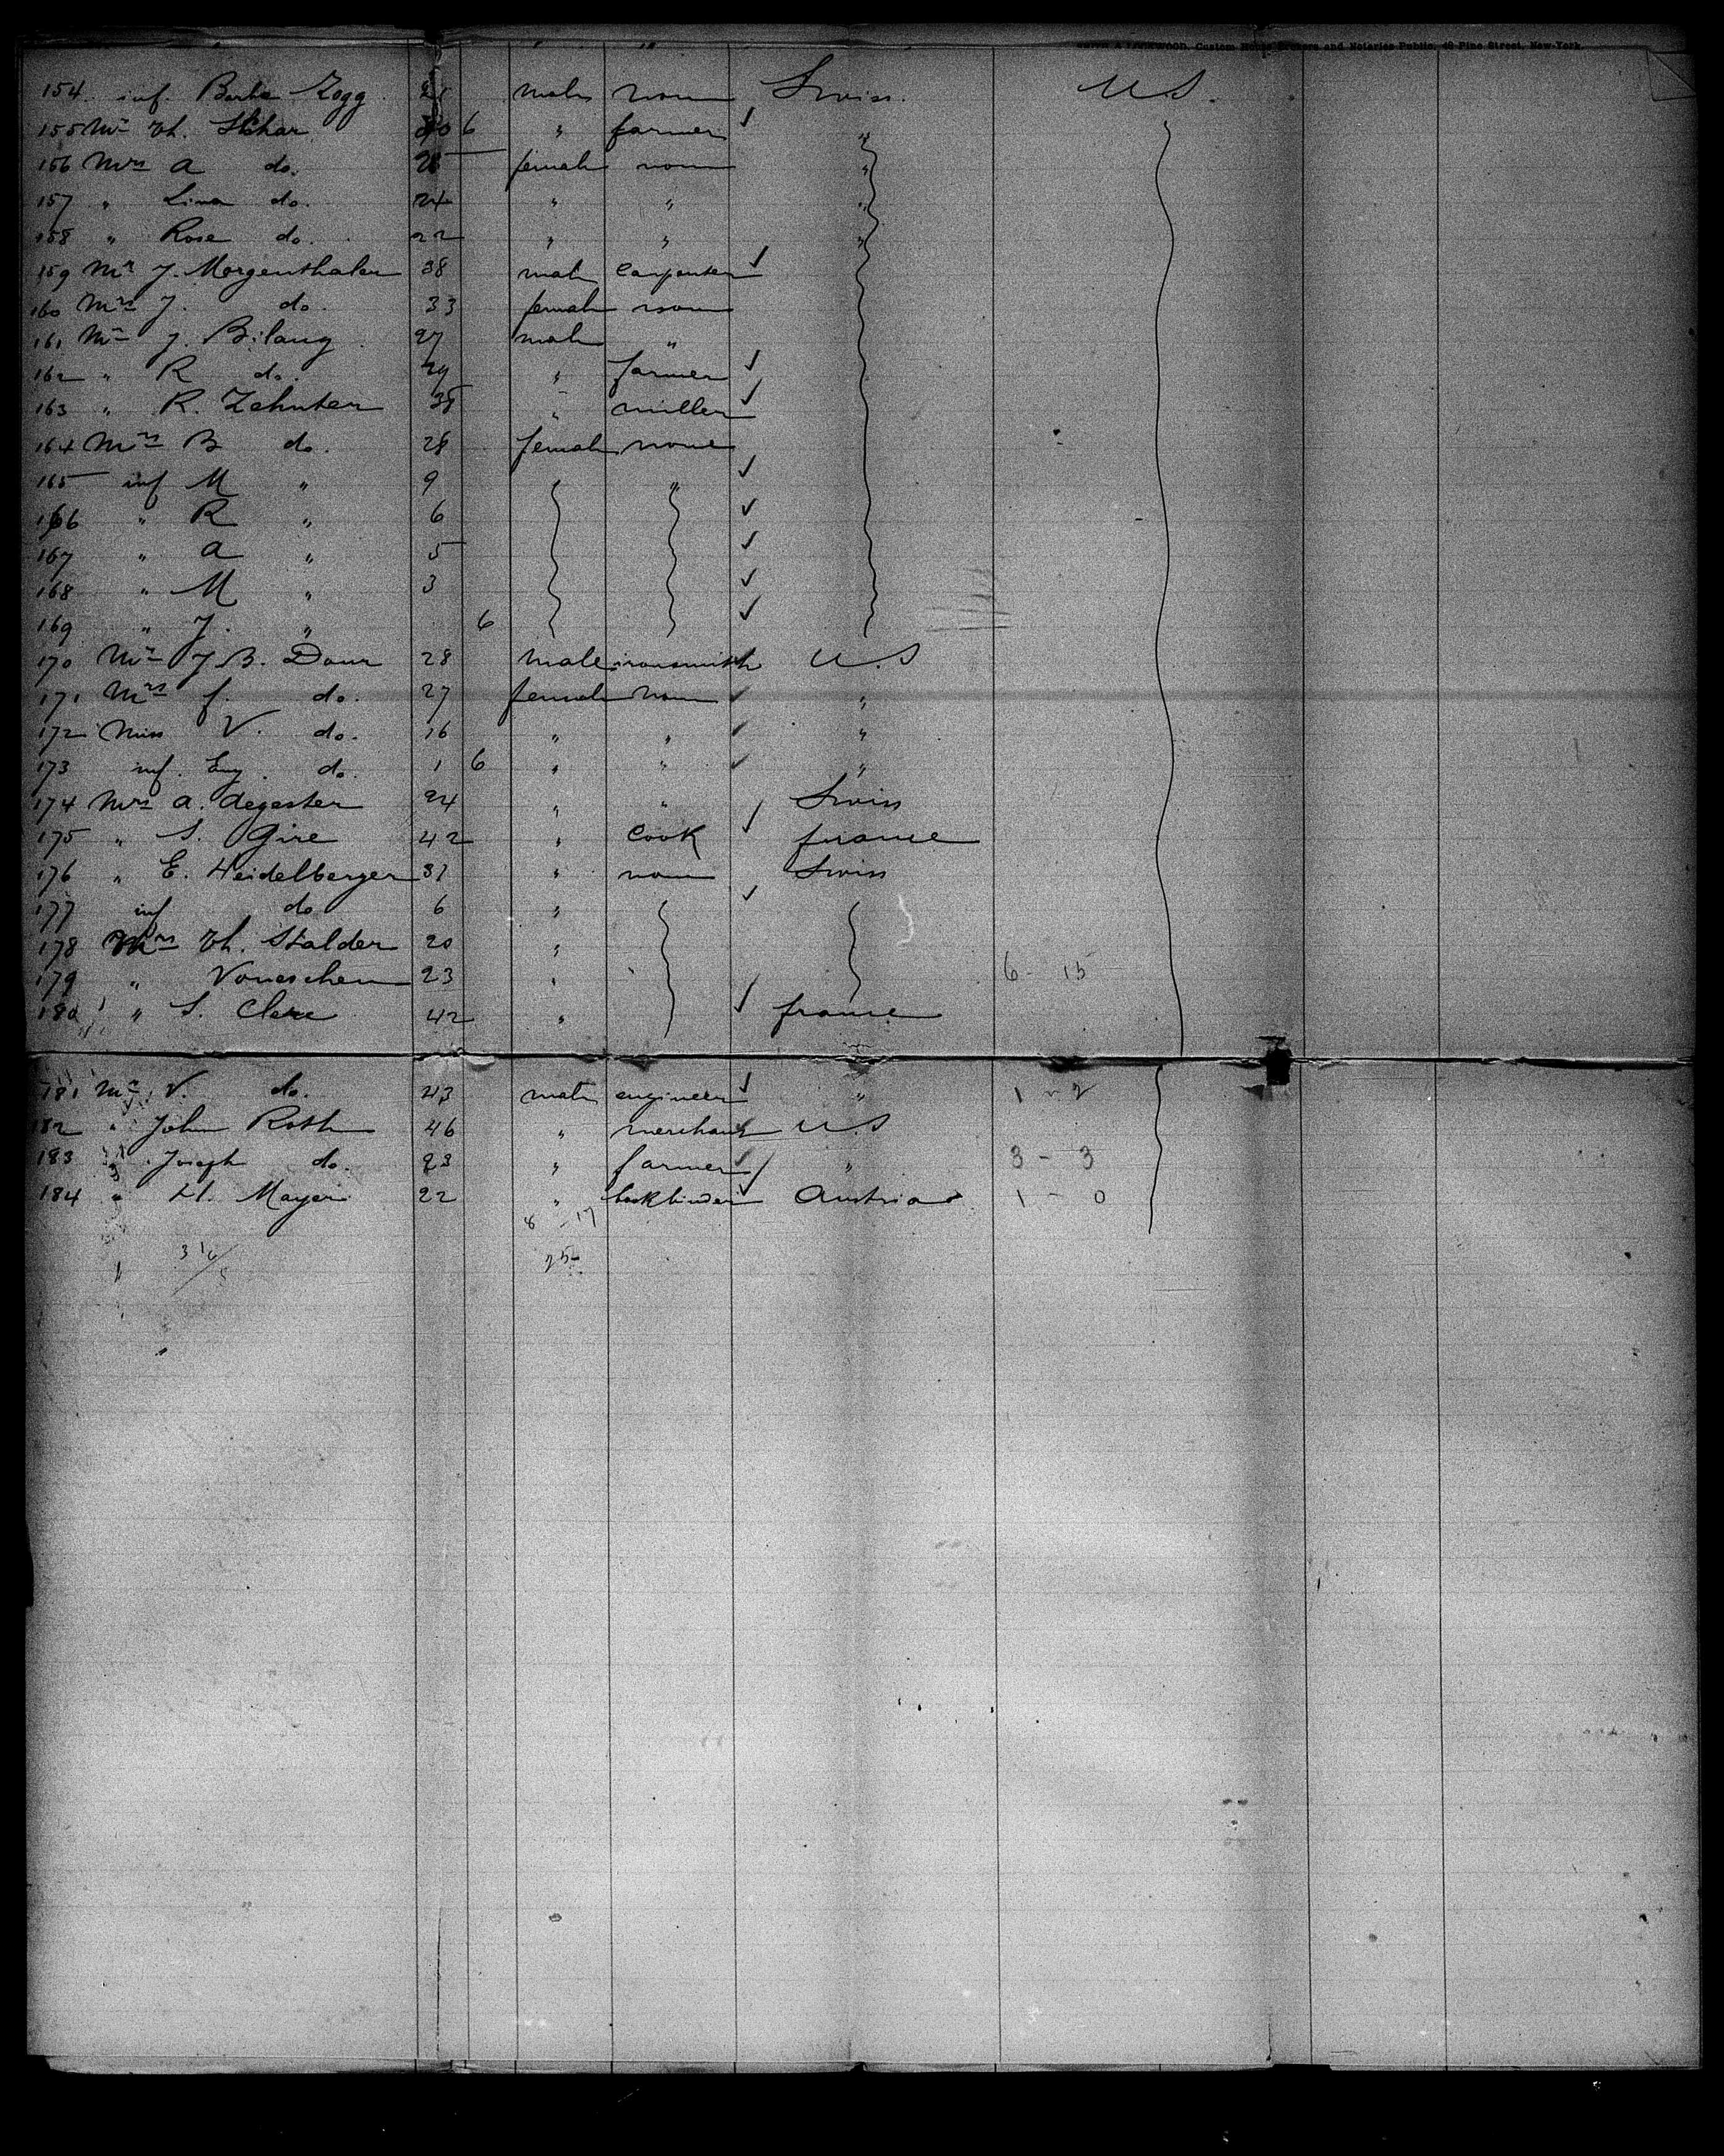 Custom House Brokers and Notaries Public, 40 Pine Street, New-York
154 inf. Bertha Zogg male none Swiss. U.S.
155 Mr Th. Schar 6 " farmer "
156 Mrs A do. 28 female none "
157 " Lina do. 24 " " "
158 " Rose do. 22 " " "
159 Mr J. Morgenthaler 38 male carpenter
160 Mrs J. do. 33 female none
161 Mr J. Bilang 27 male "
162 " R do. 29 " farmer
163 " R. Zehnter 38 " miller
164 Mrs B do. 28 female none
165 inf M " 9 "
166 " R " 6
167 " A " 5
168 " M " 3
169 " J. " 6
170 Mr J.B. Daur 28 male ironsmith U.S
171 Mrs f. do. 27 female none "
172 Miss V. do. 16 " " "
173 inf. Eug. do. 1 6 " " "
174 Mrs A. degester 24 " " Swiss
175 " S. Gire 42 " cook france
176 " E. Heidelberger 31 " none Swiss
177 inf do 6 "
178 Mrs Th. Stalder 20 "
179 " Voneschen 23 " 6 - 15
180 " S. Clere 42 " france
181 Mr V. do. 43 male engineer " 1 - 2
182 " John Roth 46 " merchant U.S
183 " Joseph do. 23 " farmer " 3 - 3
184 " H. Mayer 22 " bookbinder Austria 1 - 0
8 - 17
25